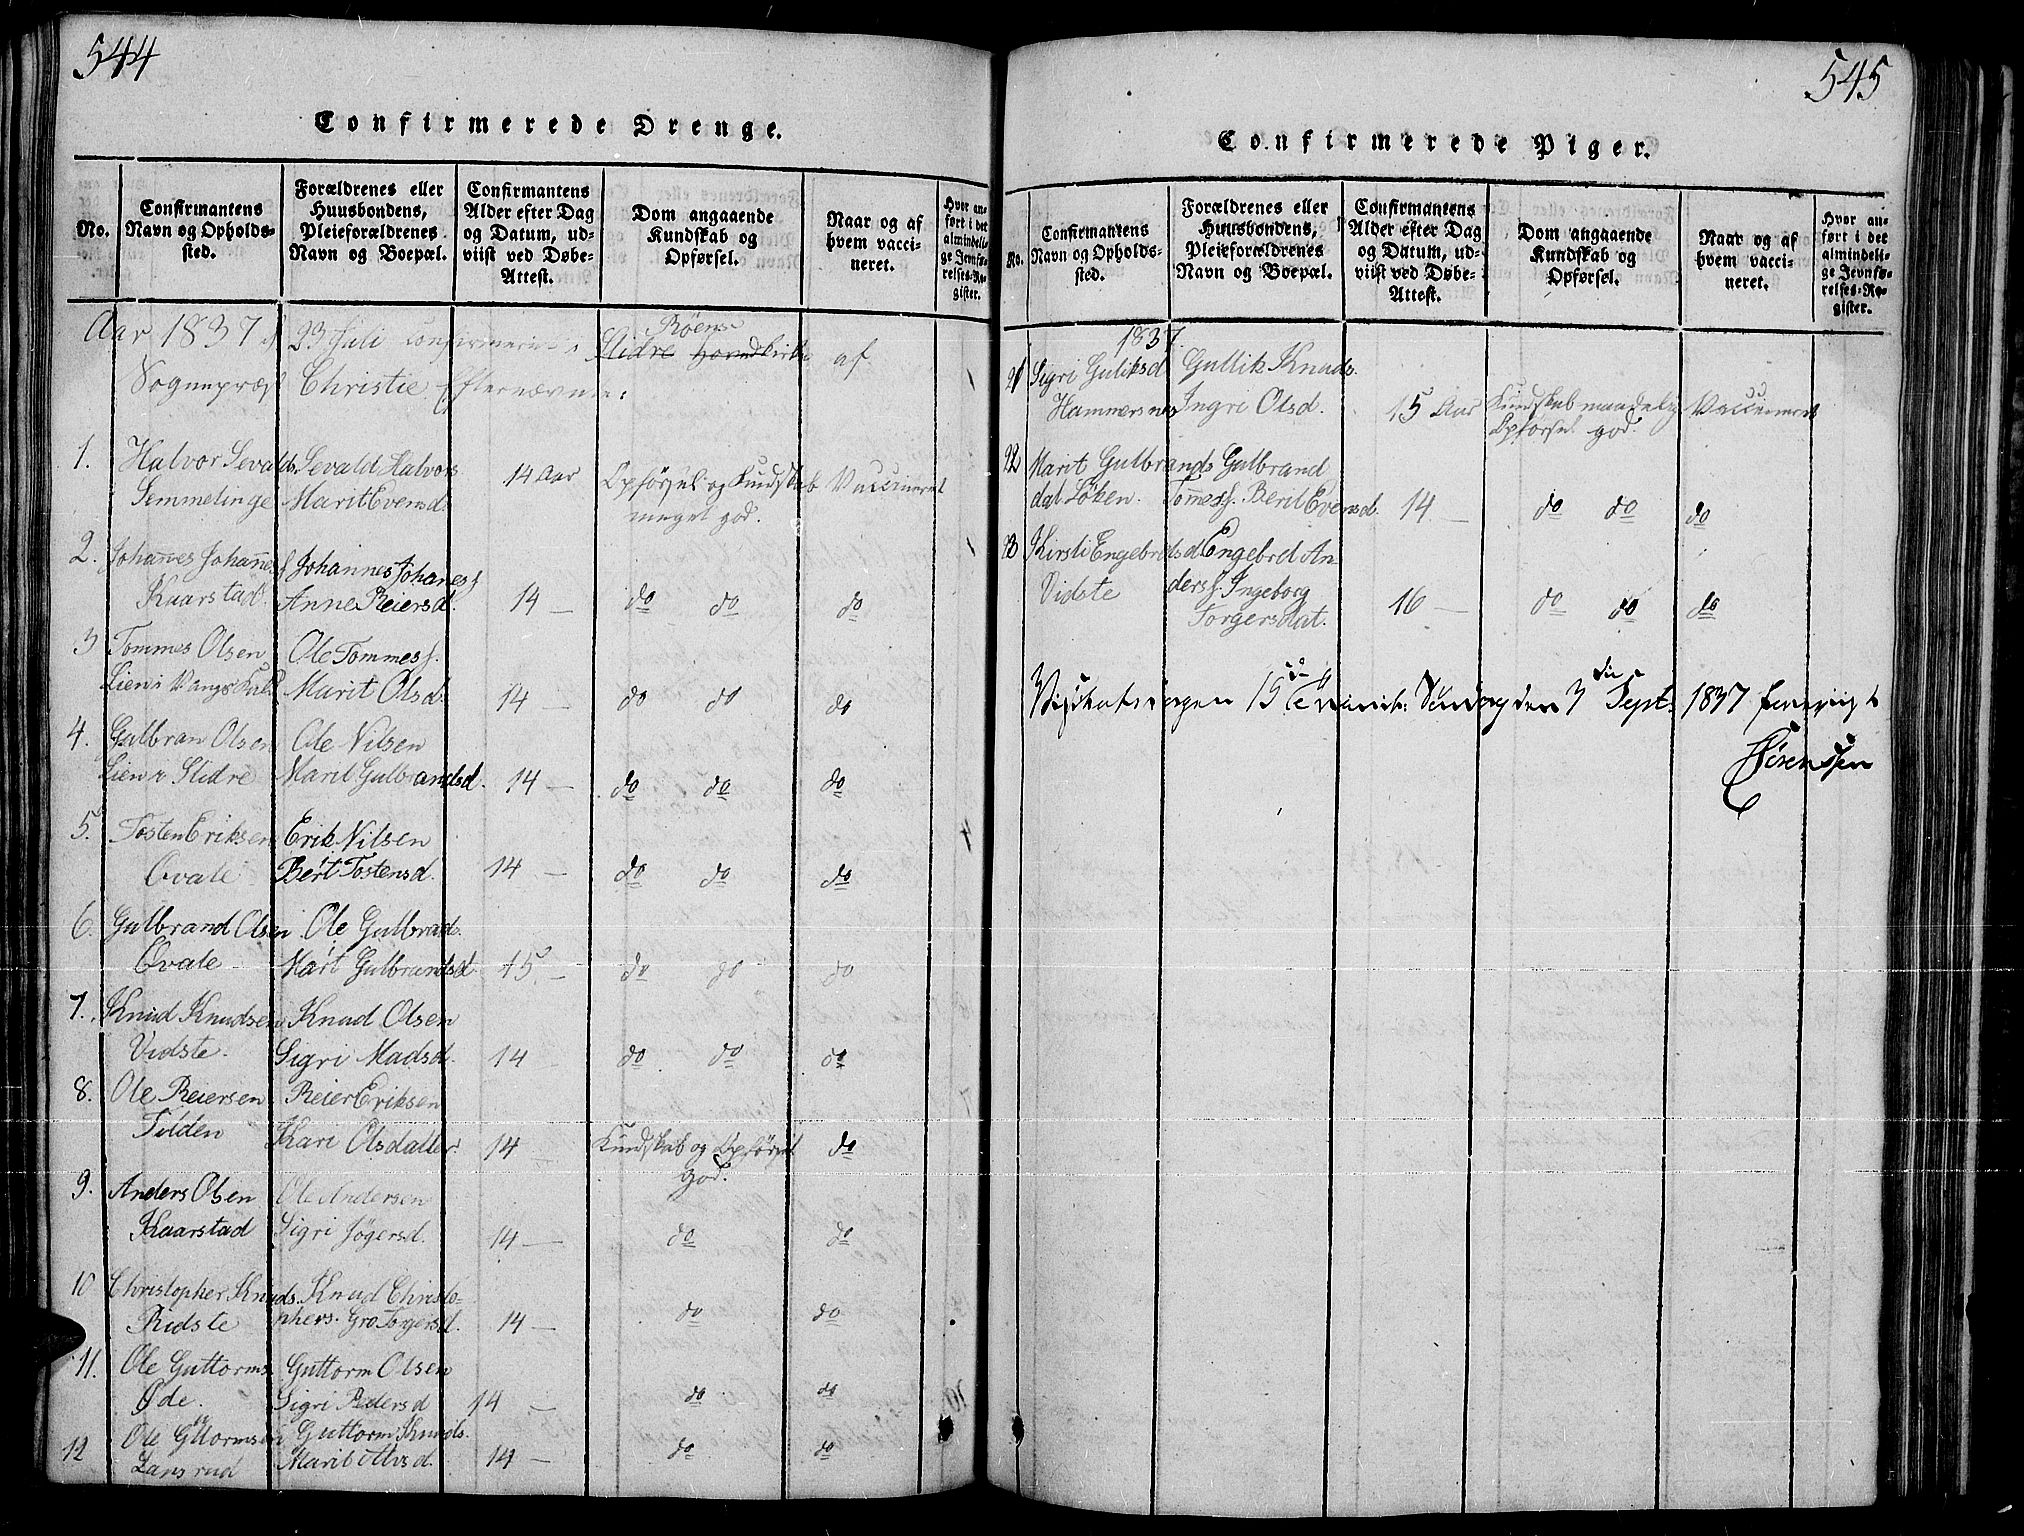 544
Confirmerede Drenge.
No.
Confirmantens Navn og Opholdssted.
Forældrenes eller Huusbondens, Pleieforældrenes Navn og Boepæl.
Confirmantens Alder efter Dag og Datum, udviist ved Døbe-Attest.
Dom angaaende Kundskab og Opførsel.
Naar og af hvem vaccineret.
Hvor anført i det almindelige Jevnførelses-Register.
Aar 1837 23 Juli confirmeret i Røens Slidre Hovedkirke af
Sognepræst Christie Efternævnte:
1. Halvor Sevalds. Sevald Halvors 14 Aar Opførsel og Kundskab Vaccineret
Semmelinge Marit Evensd. meget god.
2. Johannes Johannes Johannes Johanes
Kaarstad Anne Reiersd. 14 — do do do
3 Tommes Olsen Ole Tommes
Lien i Vangs Marit Olsd. 14 — do do do
4. Gulbran Olsen Ole Nilsen
Lien i Slidre Marit Gulbrandsd. 14 — do do do
5. Tosten Eriksen Erik Nilsen
Qvale Berit Tostensd. 14 — do do do
6. Gulbrand Olsen Ole Gulbrands.
Qvale Marit Gulbrandsd 15 — do do do
7. Knud Knudsen Knud Olsen
Vidste. Sigri Madsd. 14 do do do
8. Ole Reiersen Reier Eriksen
Tilden Kari Olsdatter 14 Kundskab og Opførsel do
god.
9. Anders Olsen Ole Andersen
Kaarstad Sigri Jøgersd. 14 — do do
10 Christopher Knuds. Knud Christo-
Ridste phers. Gro Torgersd. 14 — do do
11. Ole Guttorms. Guttorm Olsen
Øde. Sigri Pedersd 14 — do do
12 Ole Guttormsen Guttorm Knuds.
Lansrud Marit Alvsd. 14 — do do
545
Confirmerede Piger.
No.
Confirmantens Navn og Opholdssted.
Forældrenes eller Huusbondens, Pleieforældrenes Navn og Boepæl.
Confirmantens Alder efter Dag og Datum, udviist ved Døbe-Attest.
Dom angaaende Kundskab og Opførsel.
Naar og af hvem vaccineret.
Hvor anført i det almindelige Jevnførelses-Register.
1837.
21 Sigri Guliksd Gullik Knuds.
Hammersnes Ingri Olsd. 15 Aar Kundskab maadelig Vaccineret
Opførsel god.
22 Marit Gulbrands Gulbrand
dat Løken. Tommes. Berit Evensd. 14 — do do do
23 Kirsti Engebretsd Engebrd An-
Vidste ders. Ingeborg 16 — do do do
Torgersdat.
15de Trinit: Søndag den 3die Sept. 1837
Sørenssen